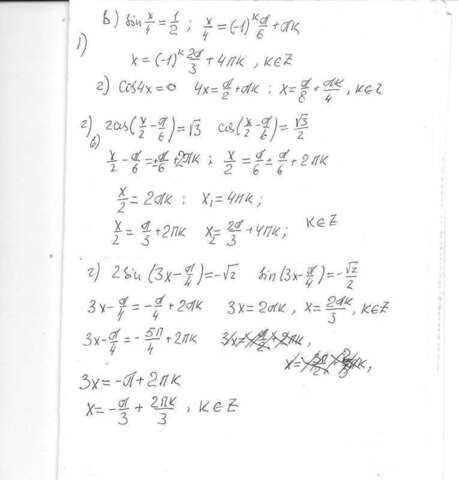 в) sin x/4 = 1/2 ; x/4 = (-1)^k π/6 + πk
1)
x = (-1)^k 2π/3 + 4πk , k∈Z
г) cos4x = 0 4x = π/2 + πk ; x = π/8 + πk/4 , k∈Z
2) 2cos(x/2 - π/6) = √3 cos(x/2 - π/6) = √3/2
в)
x/2 - π/6 = ±π/6 + 2πk ; x/2 = π/6 ± π/6 + 2πk
x/2 = 2πk ; x₁ = 4πk ;
x/2 = π/3 + 2πk x₂ = 2π/3 + 4πk ; k∈Z
г) 2sin(3x - π/4) = -√2 sin(3x - π/4) = -√2/2
3x - π/4 = -π/4 + 2πk 3x = 2πk , x = 2πk/3 , k∈Z
3x - π/4 = -5π/4 + 2πk
3x = -π + 2πk
x = -π/3 + 2πk/3 , k∈Z